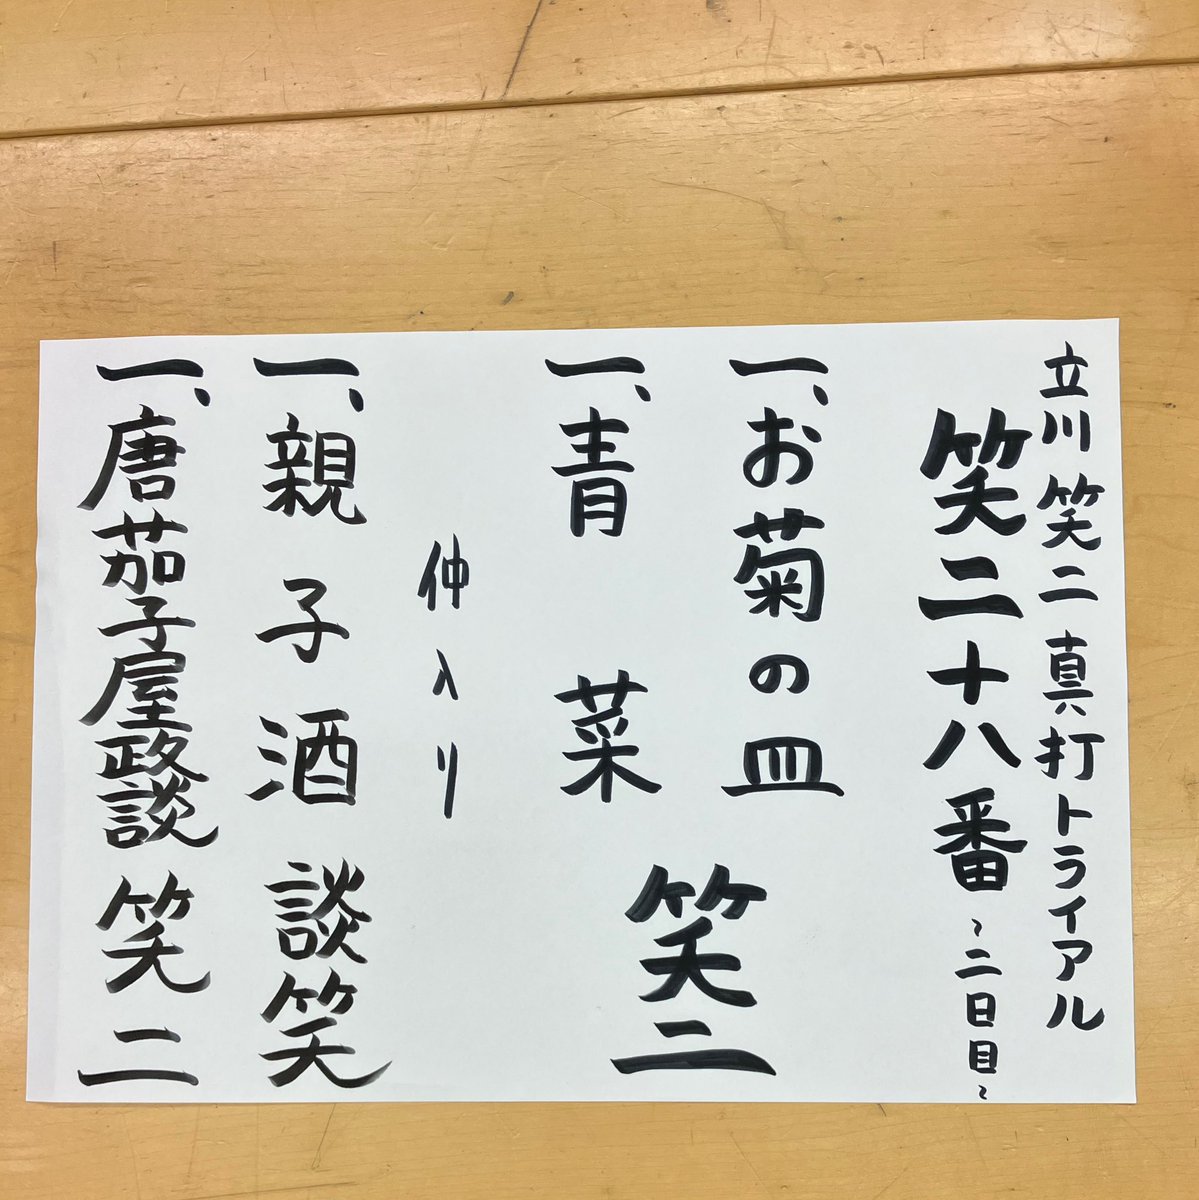 立川笑二 真打トライアル
笑二十八番 ~二日目~
一、お菊の皿
一、青菜
笑二
仲入り
一、親子酒 談笑
一、唐茄子屋政談 笑二